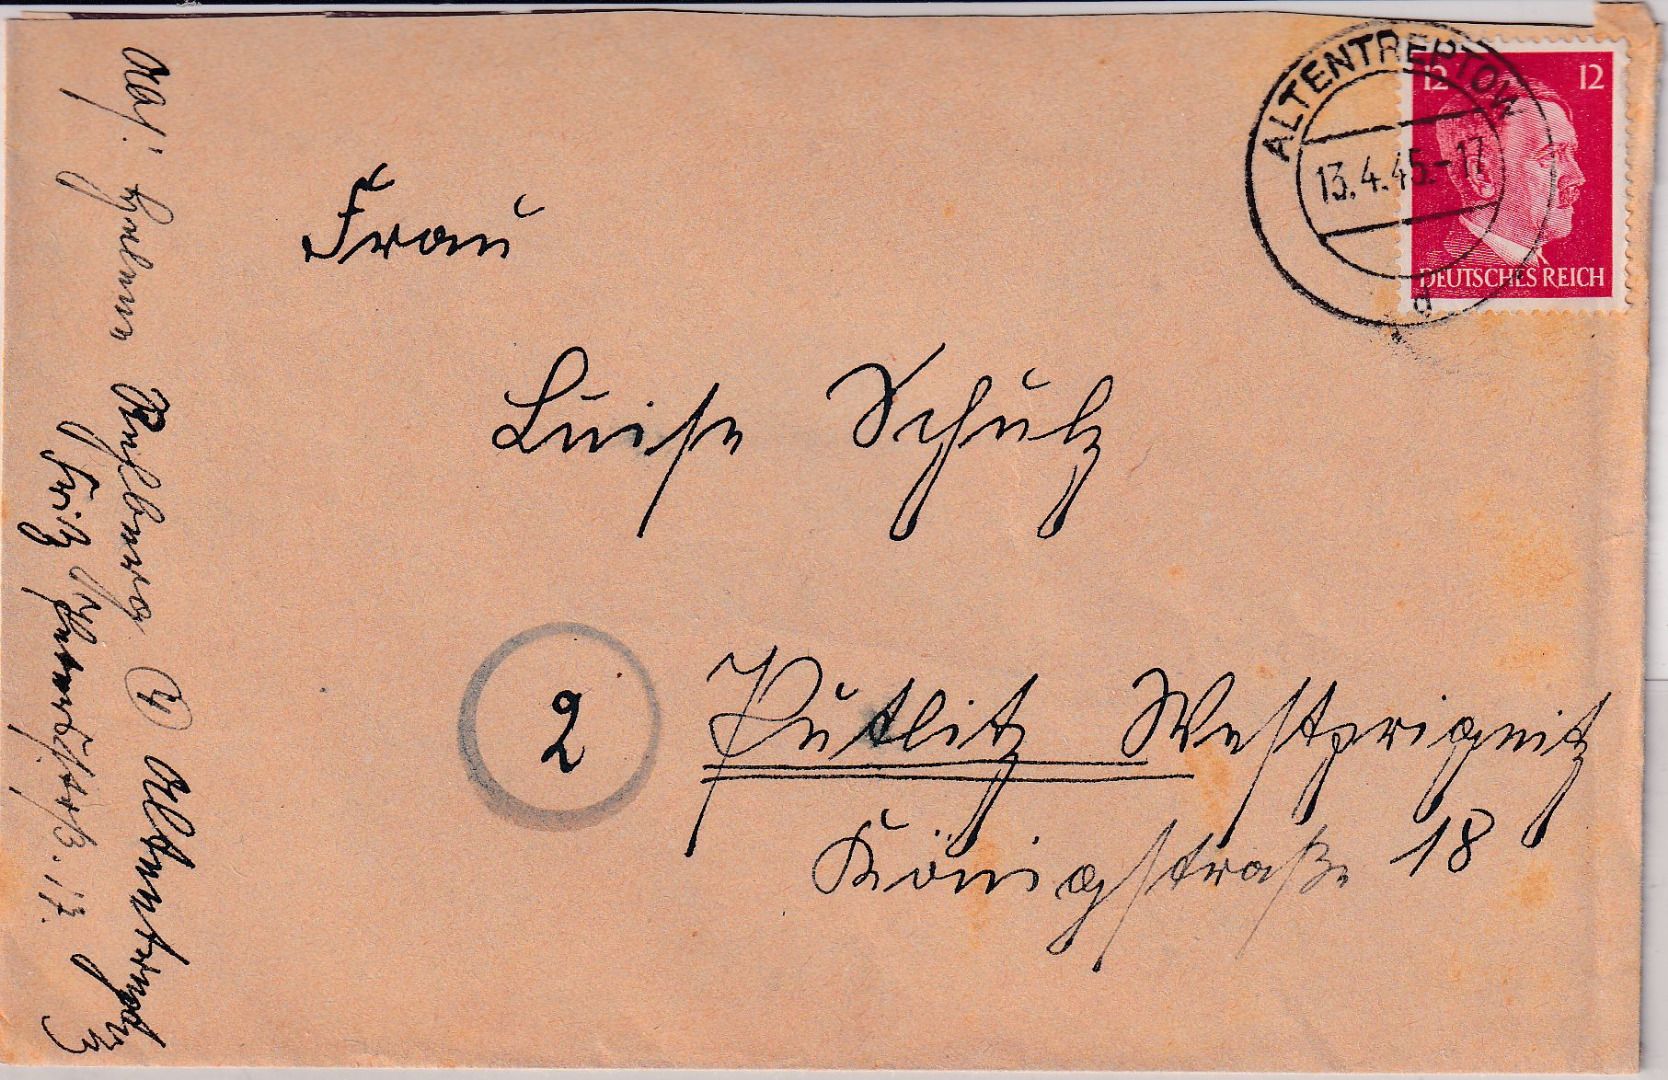 ALTENTREPTOW
13.4.45.-17
d
12 12
DEUTSCHES REICH
Frau
Luise Schulz
2 Putlitz Westprignitz
Königstraße 18
Abs:
(4) Altentreptow
Fritz Str. 17.